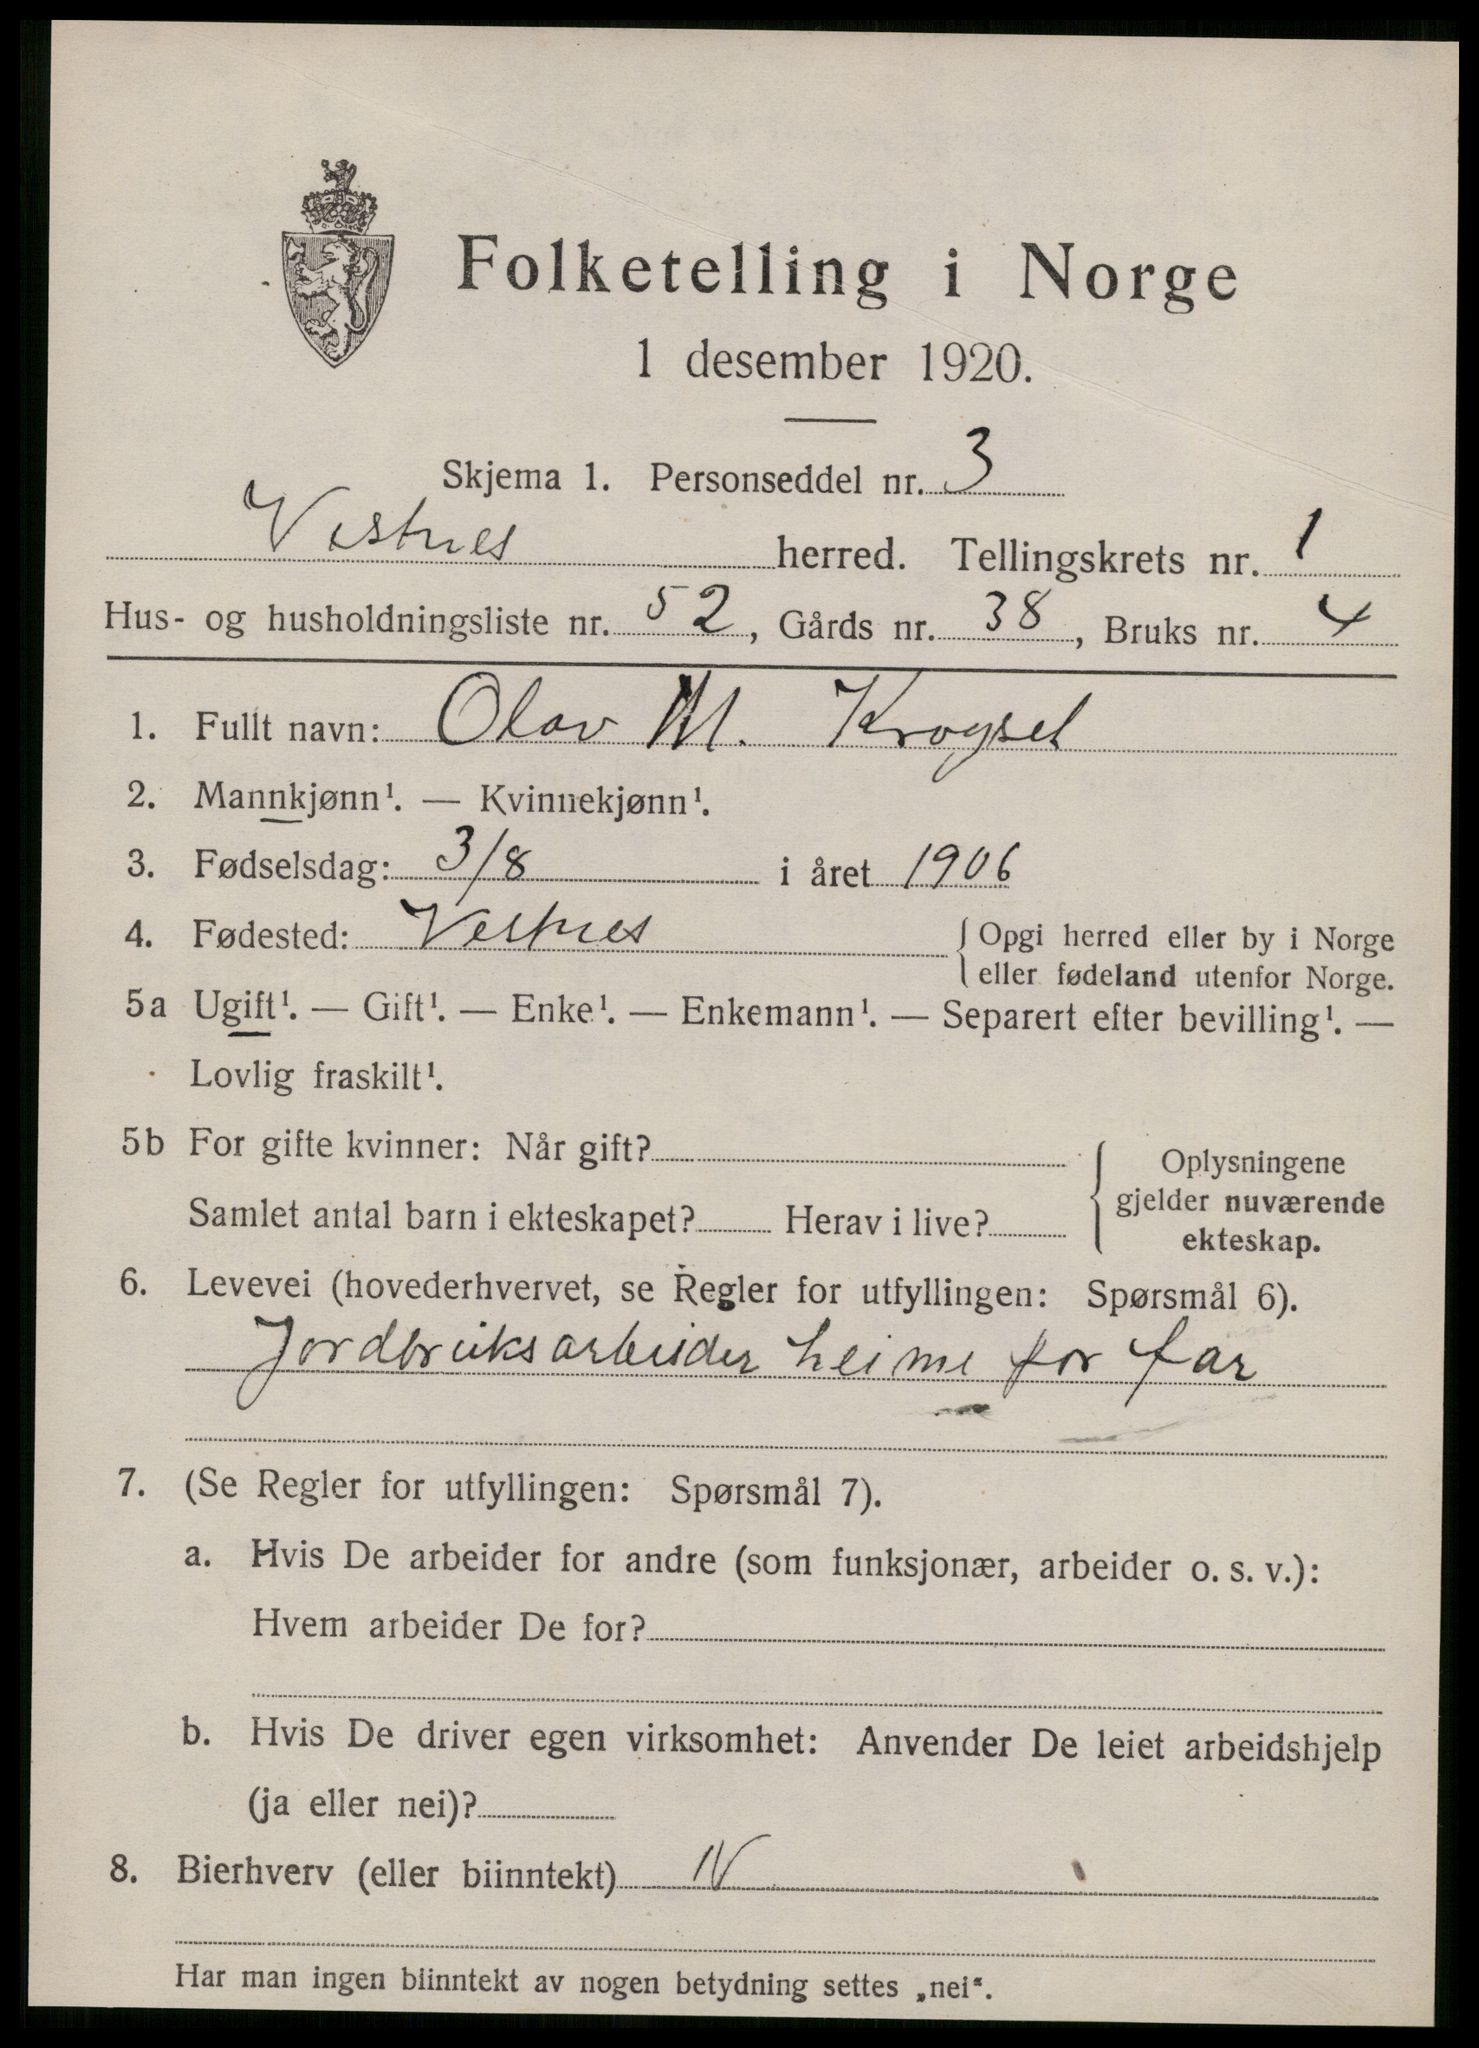 Folketelling i Norge
1 desember 1920.
Skjema 1. Personseddel nr. 3
Vestnes herred. Tellingskrets nr. 1
Hus- og husholdningsliste nr. 52, Gårds nr. 38, Bruks nr. 4
1. Fullt navn: Olav M. Krogset
2. Mannkjønn¹. — Kvinnekjønn¹.
3. Fødselsdag: 3/8 i året 1906
4. Fødested: Vestnes { Opgi herred eller by i Norge
eller fødeland utenfor Norge.
5a Ugift¹. — Gift¹. — Enke¹. — Enkemann¹. — Separert efter bevilling¹. —
Lovlig fraskilt¹.
5b For gifte kvinner: Når gift?
Samlet antal barn i ekteskapet? Herav i live?
Oplysningene
gjelder nuværende
ekteskap.
6. Levevei (hovederhvervet, se Regler for utfyllingen: Spørsmål 6).
Jordbruksarbeider heime for far
7. (Se Regler for utfyllingen: Spørsmål 7).
a. Hvis De arbeider for andre (som funksjonær, arbeider o. s. v.):
Hvem arbeider De for?
b. Hvis De driver egen virksomhet: Anvender De leiet arbeidshjelp
(ja eller nei)?
8. Bierhverv (eller biinntekt) N
Har man ingen biinntekt av nogen betydning settes „nei".